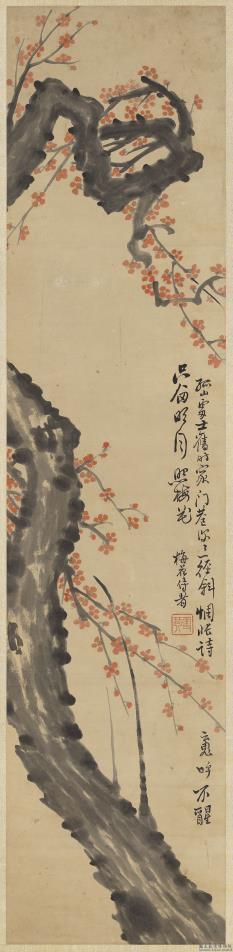 孤山處士舊時家門巷深深一徑斜惆悵詩
魂呼不醒
只留明月照梅花
梅花侍者